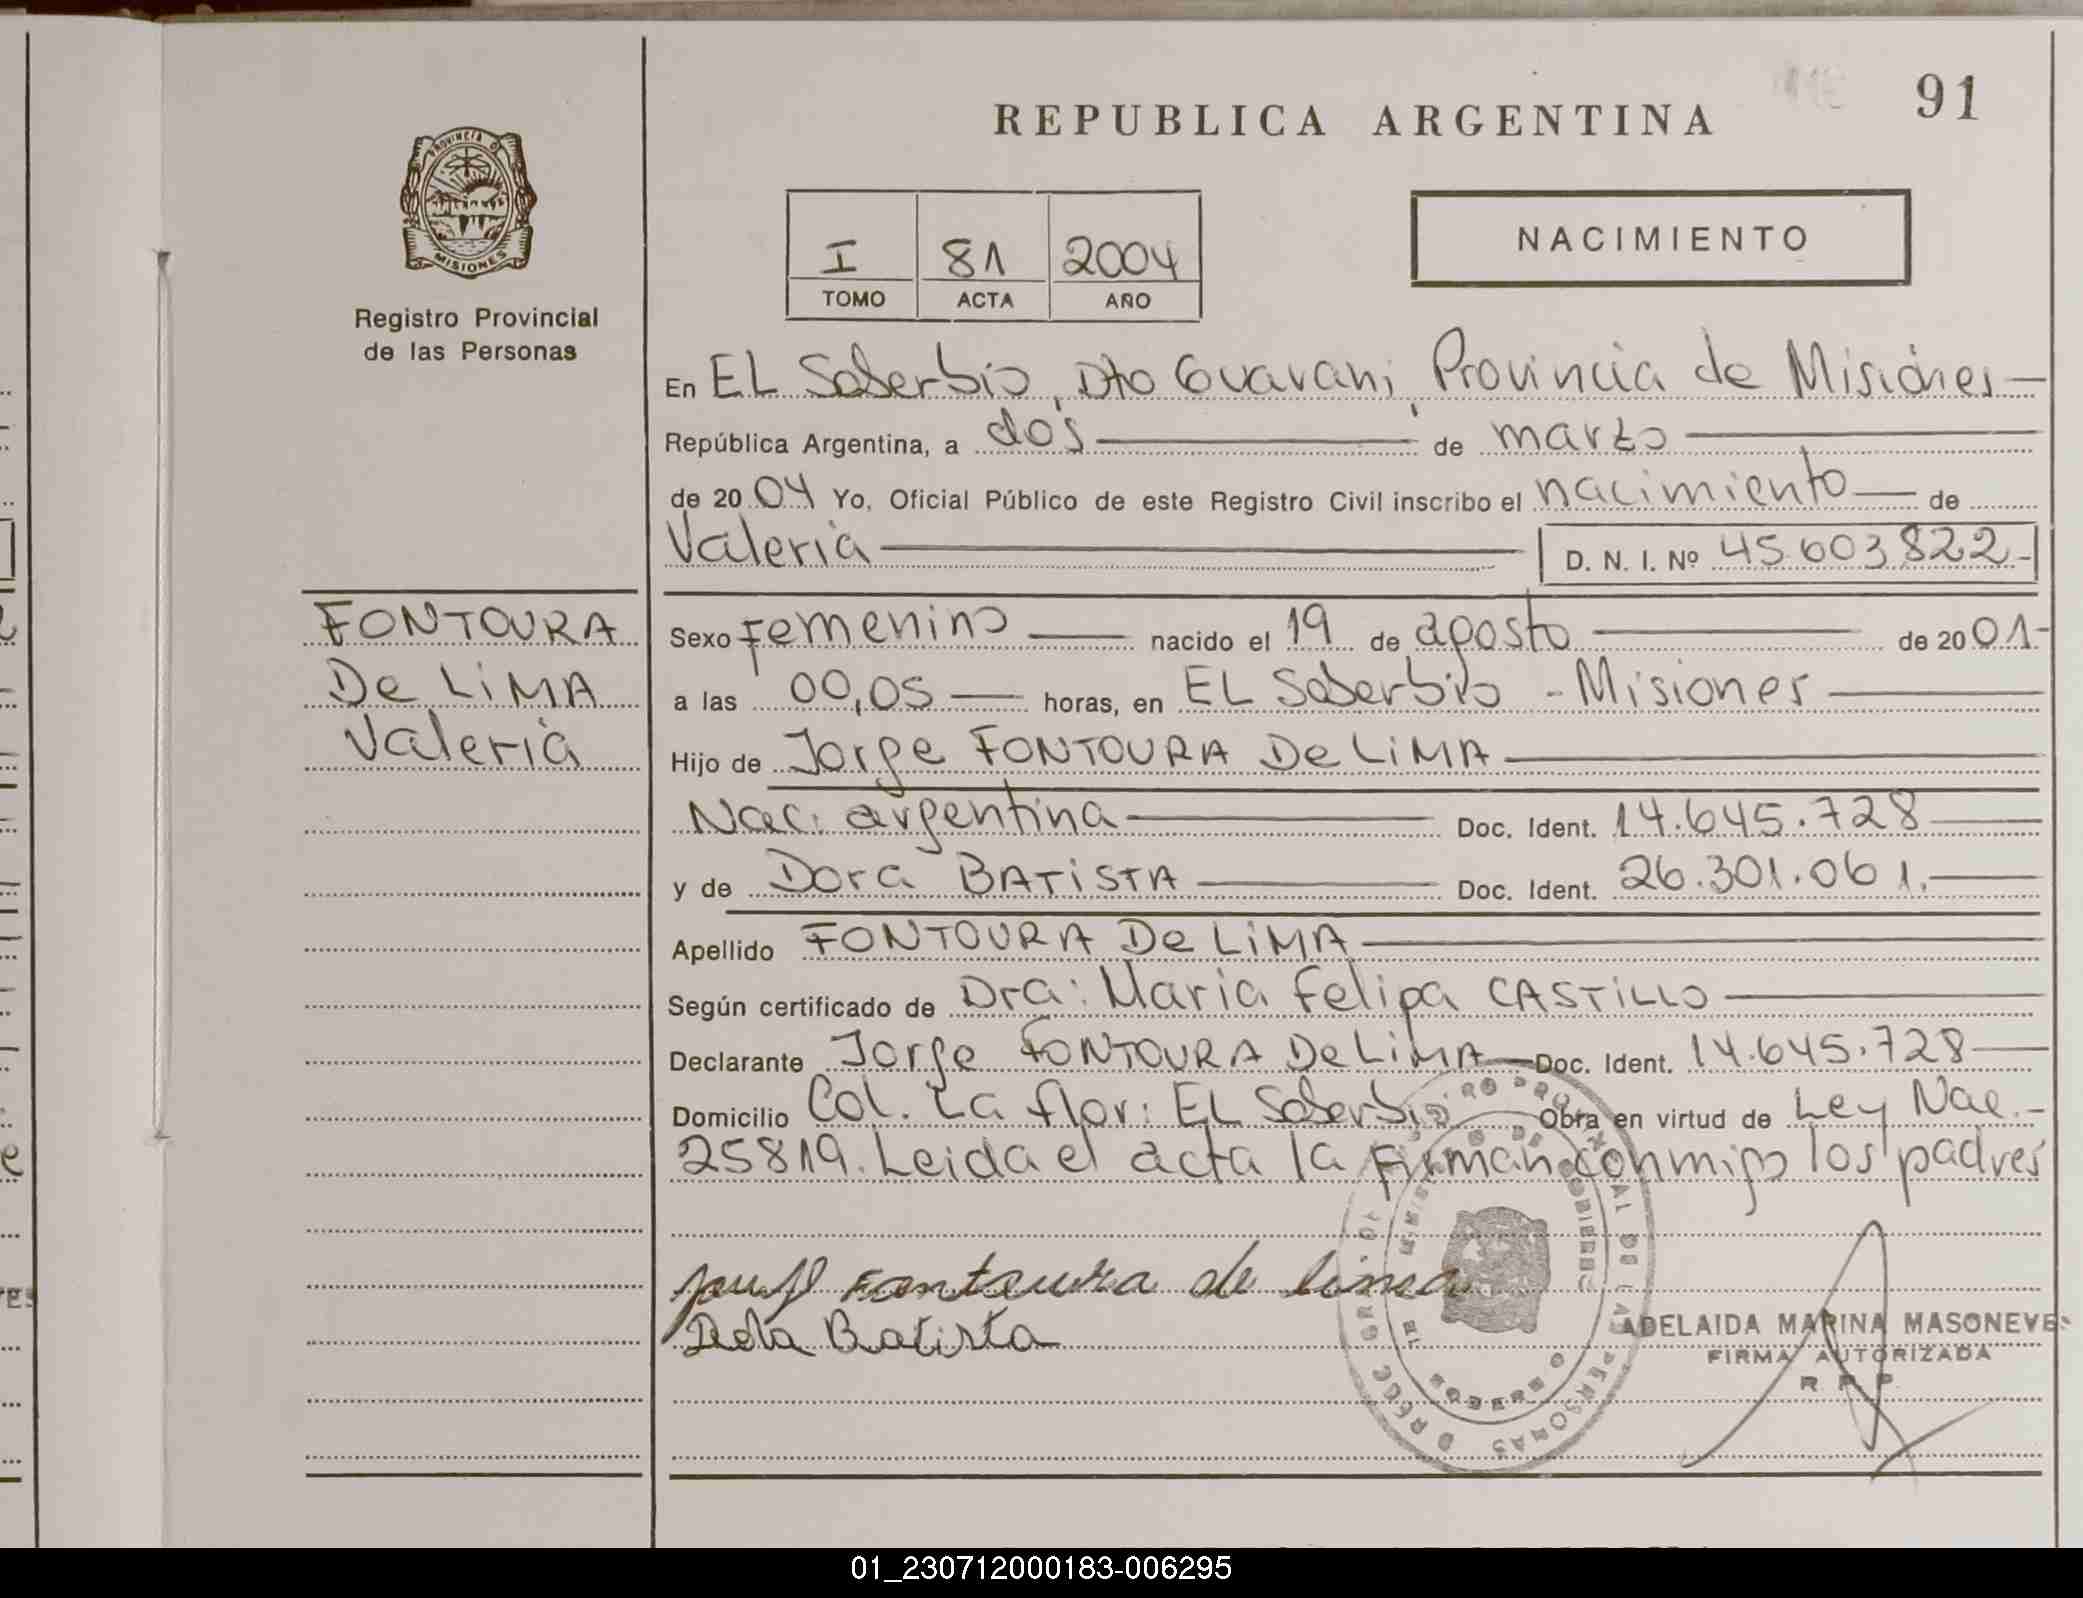 91
REPUBLICA ARGENTINA
PROVINCIA D
MISIONES
Registro Provincial
de las Personas
I 81 2004
TOMO ACTA AÑO
NACIMIENTO
En EL Soberbio, Dto Guarani, Provincia de Misiones
República Argentina, a dos de marzo
de 2004 Yo, Oficial Público de este Registro Civil inscribo el nacimiento de
Valeria D. N. I. Nº 45.603.822
FONTOURA
De LiMA
Valeria
Sexo Femenino nacido el 19 de agosto de 2001
a las 00,05 horas, en EL Soberbio - Misiones
Hijo de Jorge FONTOURA De LiMA
Nac. argentina Doc. Ident. 14.645.728
y de Dora BATiSTA Doc. Ident. 26.301.061.
Apellido FONTOURA De LiMA
Según certificado de Dra: Maria Felipa CASTiLLO
Declarante Jorge FONTOURA De LiMA Doc. Ident. 14.645.728
Domicilio Col. La flor: EL Soberbio Obra en virtud de Ley Nac.
25819. Leida el acta la Firman conmigo los padres
Fontoura de lima
Batista
ADELAIDA MARINA MASONEVE
FIRMA AUTORIZADA
R P P
01_230712000183-006295